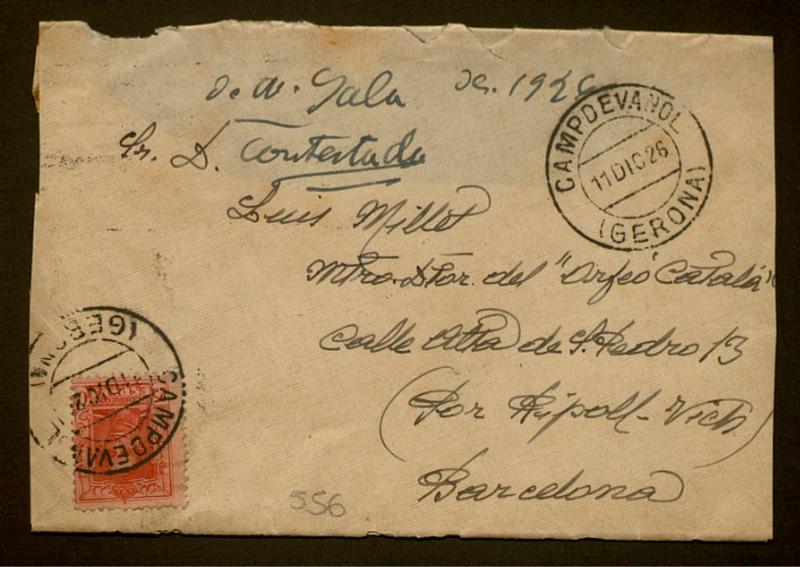 de M. Sala Dc. 1926
Sr. D. Contestada
Luis Millet
Mtro. Dtor. del "Orfeó Catalá"
Calle Alta de S. Pedro 13
(Por Ripoll-Vich)
Barcelona
CAMPDEVANOL
11 DIC 26
(GERONA)
CAMPDEVANOL
11 DIC 2
(GERONA)
556